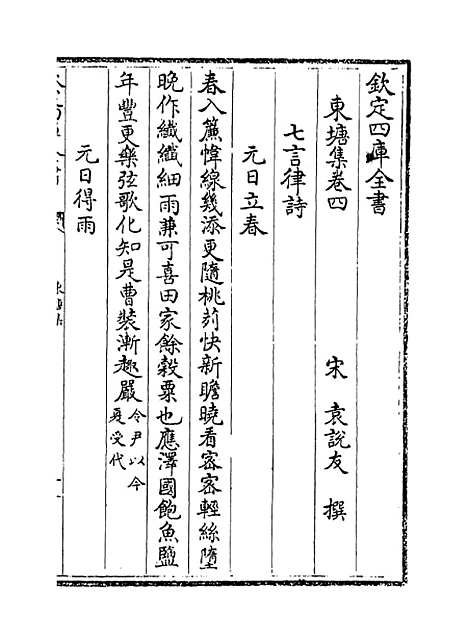 欽定四庫全書
東塘集卷四
宋 袁說友 撰
七言律詩
元日立春
春入簾幃線幾添更隨桃茢快新瞻曉看密密輕絲墮
晚作纖纖細雨兼可喜田家餘榖粟也應澤國飽魚鹽
年豐更樂弦歌化知是曹裝漸趣嚴令尹以今夏受代
元日得雨